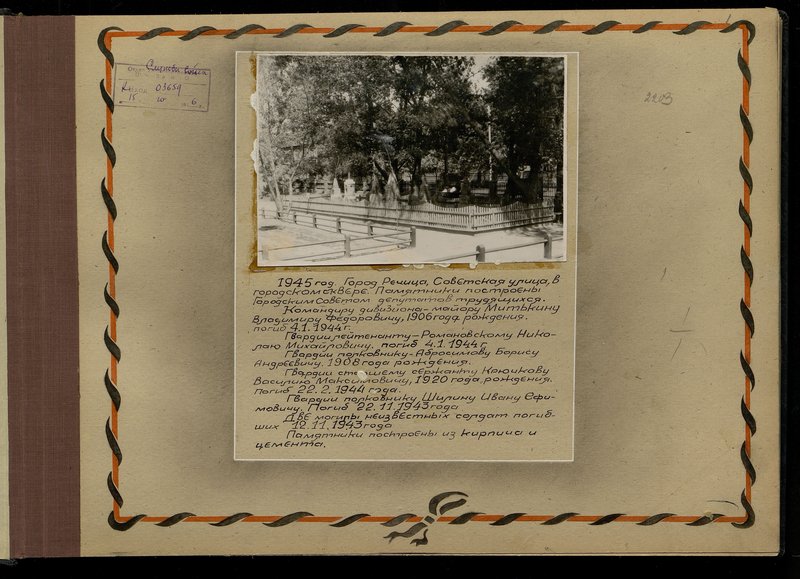 03659
15
2203
1945 год. Город Речица, Советская улица, в
городском сквере. Памятники построены
Городским Советом депутатов трудящихся.
Командиру дивизиона - майору Митькину
Владимиру Федоровичу, 1906 года рождения.
погиб 4.1.1944 г.
Гвардии лейтенанту - Романовскому Нико-
лаю Михайловичу. погиб 4.1.1944 г
Гвардии полковнику - Абросимову Борису
Андреевичу, 1908 года рождения.
Гвардии старшему сержанту Крючкову
Василию Максимовичу, 1920 года рождения.
Погиб 22.2.1944 года.
Гвардии полковнику Шилину Ивану Ефи-
мовичу. Погиб 22.11.1943 года
Две могилы неизвестных солдат погиб-
ших 12.11.1943 года
Памятники построены из кирпича и
цемента.